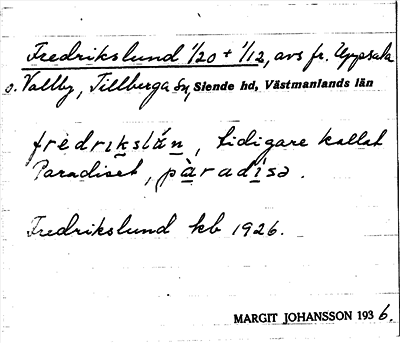 Fredrikslund 1/20 + 1/12, avs fr. Uppsala
o. Vallby, Tillberga sn, Siende hd, Västmanlands län
frèdrıkslún, tidigare kallat
Paradiset, pàradisə.
Fredrikslund kb 1926.
MARGIT JOHANSSON 1936.